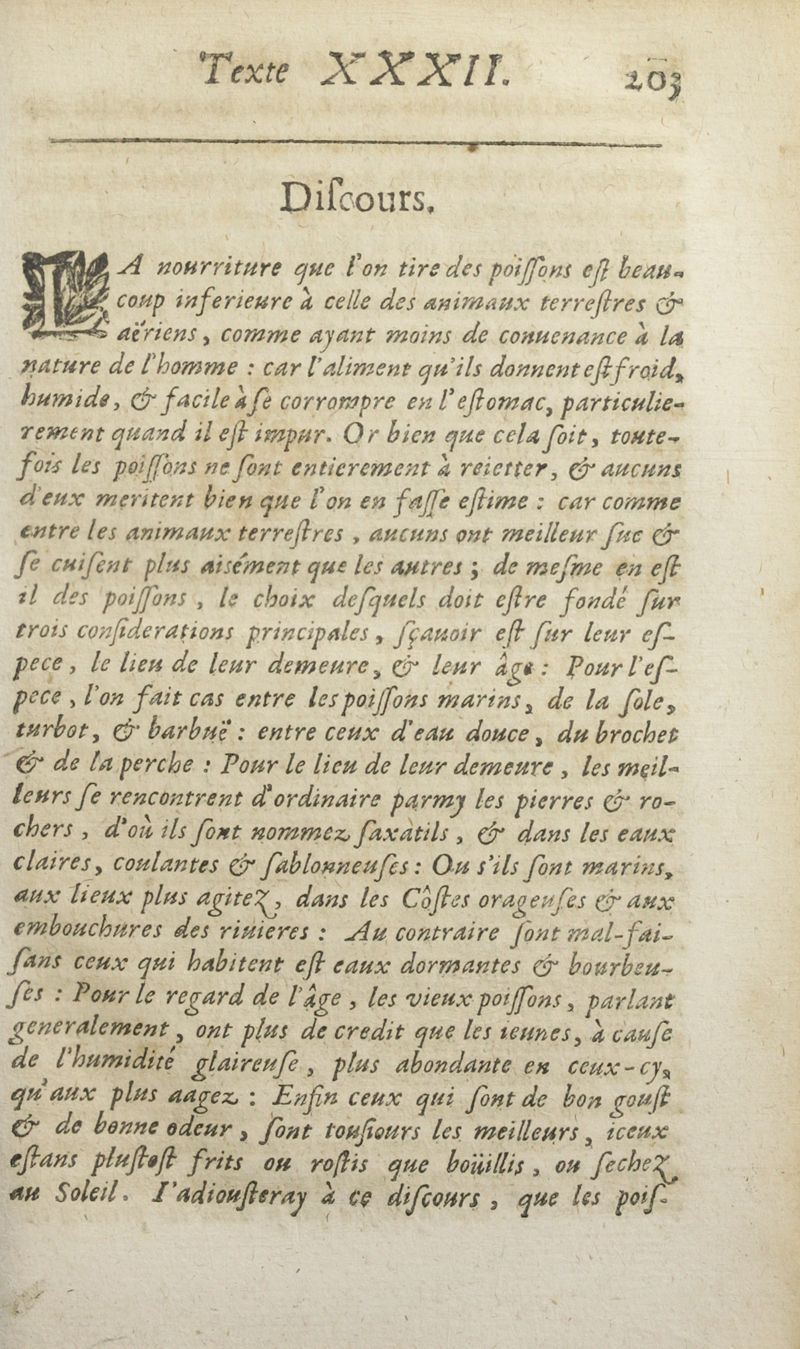 Texte XXXII. 203
Diſcours.
LA nourriture que l'on tire des poiſſons eſt beau-
coup inferieure à celle des animaux terreſtres &
aëriens, comme ayant moins de conuenance à la
nature de l'homme : car l'aliment qu'ils donnent eſt froid,
humide, & facile à ſe corrompre en l'eſtomac, particulie-
rement quand il eſt impur. Or bien que cela ſoit, toute-
fois les poiſſons ne ſont entierement à reietter, & aucuns
d'eux meritent bien que l'on en faſſe eſtime : car comme
entre les animaux terreſtres, aucuns ont meilleur ſuc &
ſe cuiſent plus aisément que les autres ; de meſme en eſt
il des poiſſons, le choix deſquels doit eſtre fondé ſur
trois conſiderations principales, ſçauoir eſt ſur leur eſ-
pece, le lieu de leur demeure, & leur âge : Pour l'eſ-
pece, l'on fait cas entre les poiſſons marins, de la ſole,
turbot, & barbuë : entre ceux d'eau douce, du brochet
& de la perche : Pour le lieu de leur demeure, les meil-
leurs ſe rencontrent d'ordinaire parmy les pierres & ro-
chers, d'où ils ſont nommez ſaxàtils, & dans les eaux
claires, coulantes & ſablonneuſes : Ou s'ils ſont marins,
aux lieux plus agitez, dans les Côſtes orageuſes & aux
embouchures des riuieres : Au contraire ſont mal-fai-
ſans ceux qui habitent eſt eaux dormantes & bourbeu-
ſes : Pour le regard de l'âge, les vieux poiſſons, parlant
generalement, ont plus de credit que les ieunes, à cauſe
de l'humidité glaireuſe, plus abondante en ceux-cy,
qu'aux plus aagez : Enfin ceux qui ſont de bon gouſt
& de bonne odeur, ſont touſiours les meilleurs, iceux
eſtans pluſtoſt frits ou roſtis que boüillis, ou ſechez
au Soleil. I'adiouſteray à ce diſcours, que les poiſ-